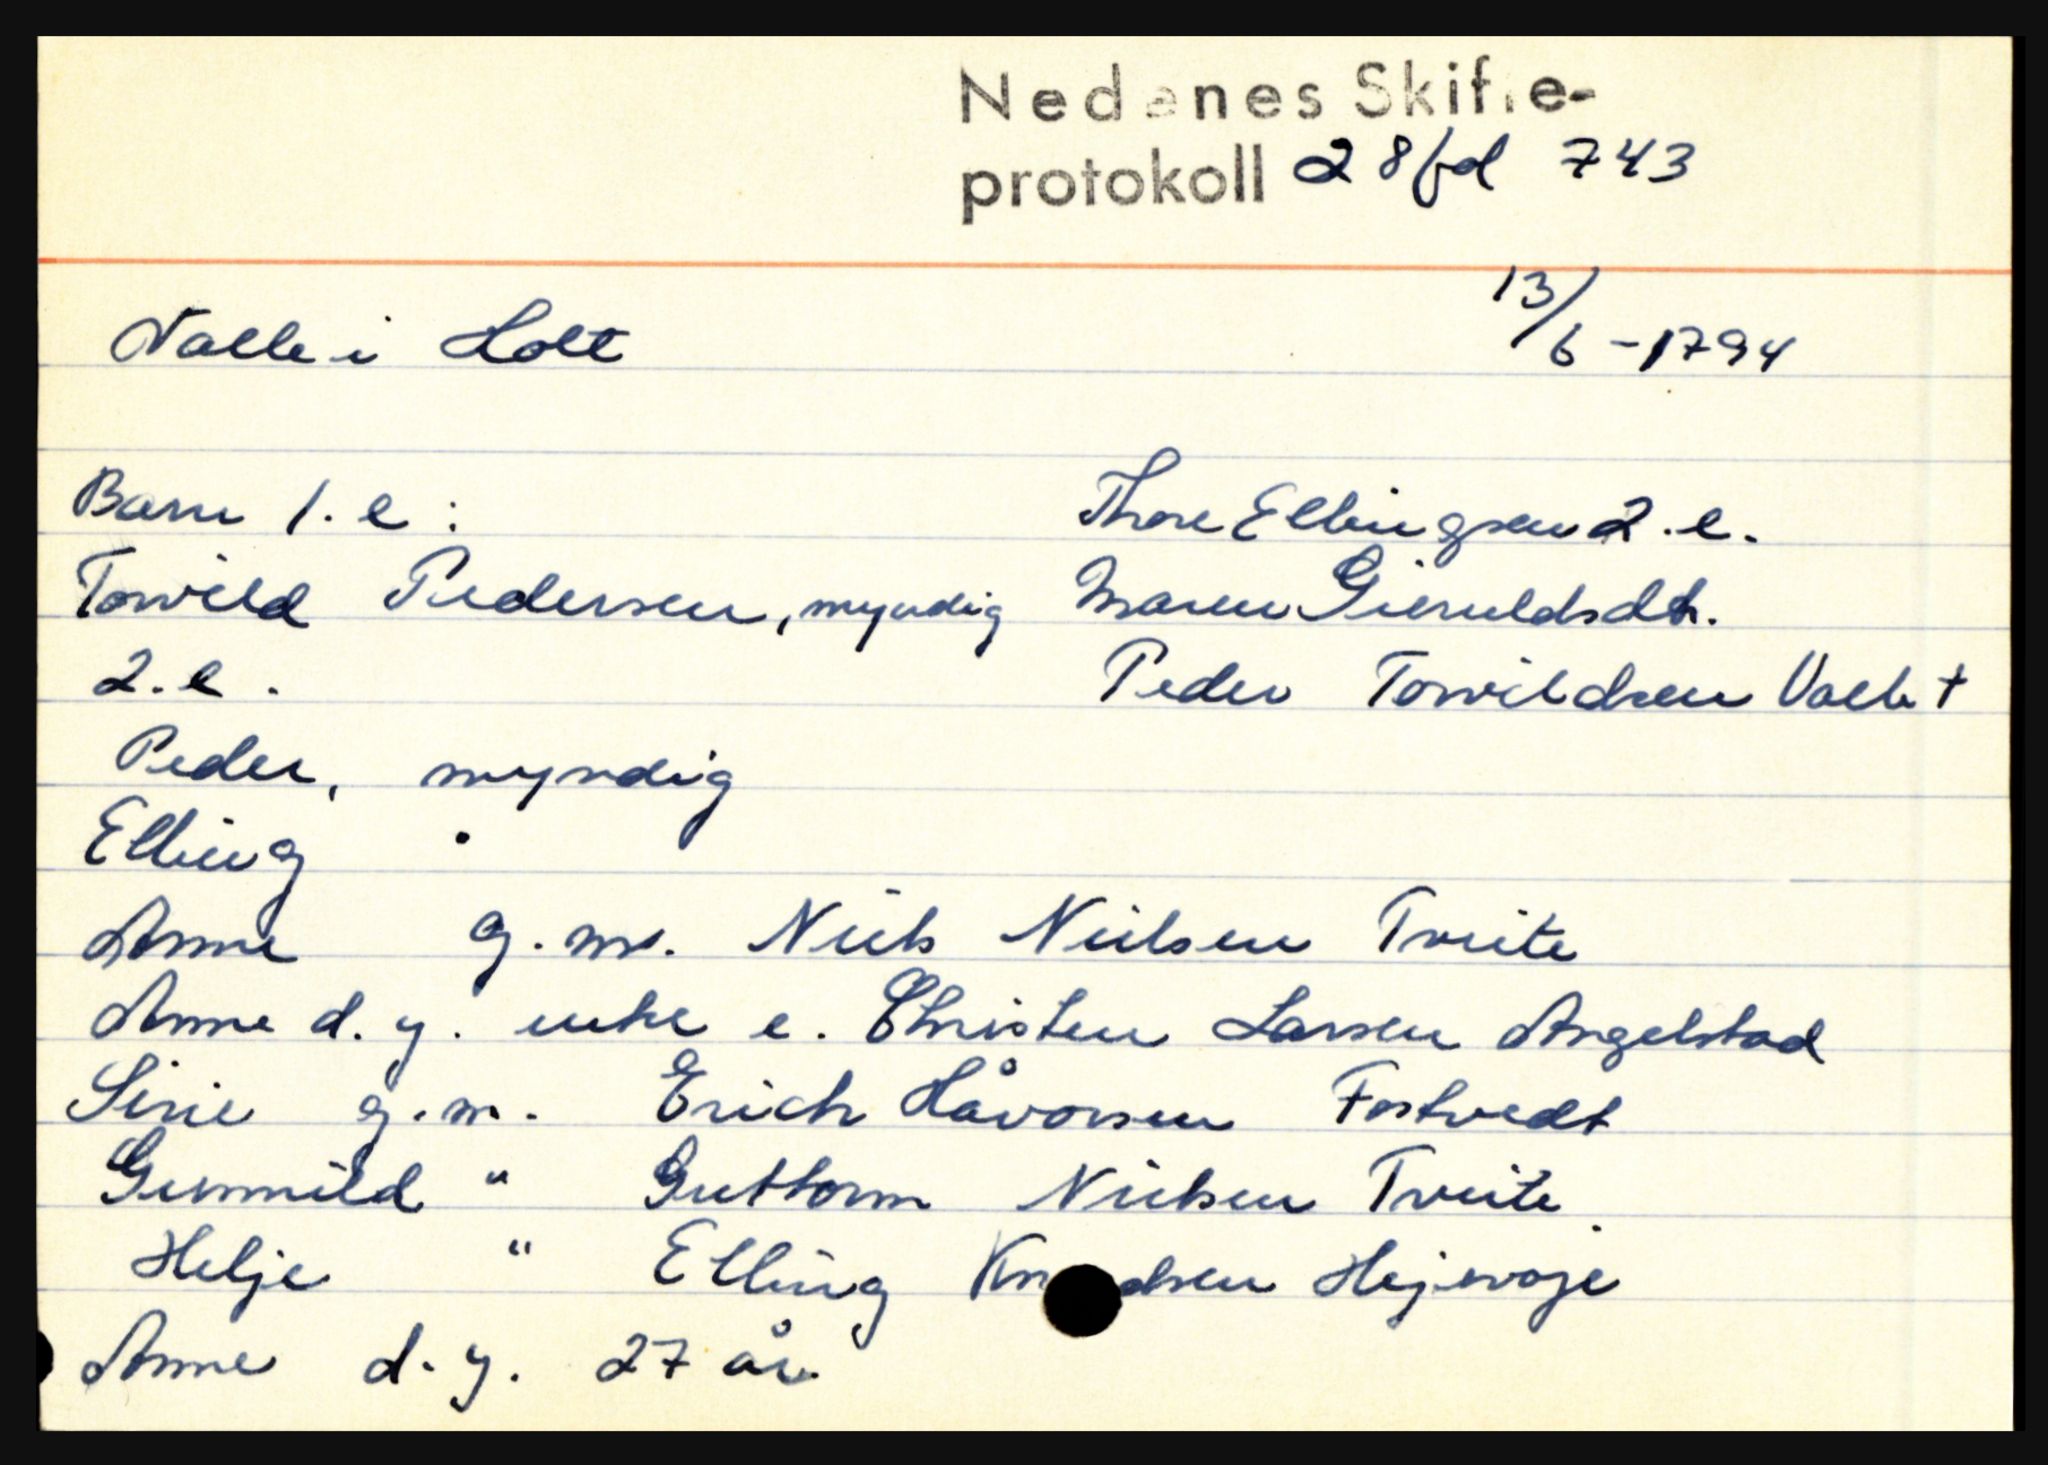 Nedenes Skifte-
protokoll 28 fol 743
13/6 - 1794
Valle i Holt
Barn 1. e : Thore Ellingsen 2. e.
Torvild Pedersen, myndig Maren Gieruldsdtr.
2. e. Peder Torvildsen Valle +
Peder, myndig
Elling "
Anne g. m. Niels Nielsen Tveite
Anne d. y. enke e. Christen Larsen Angelstad
Sirie g. m. Erich Håvorsen Fostvedt
Gunnild " Guttorm Nielsen Tveite
Helje " Elling Knudsen Hejevoje
Anne d. y. 27 år